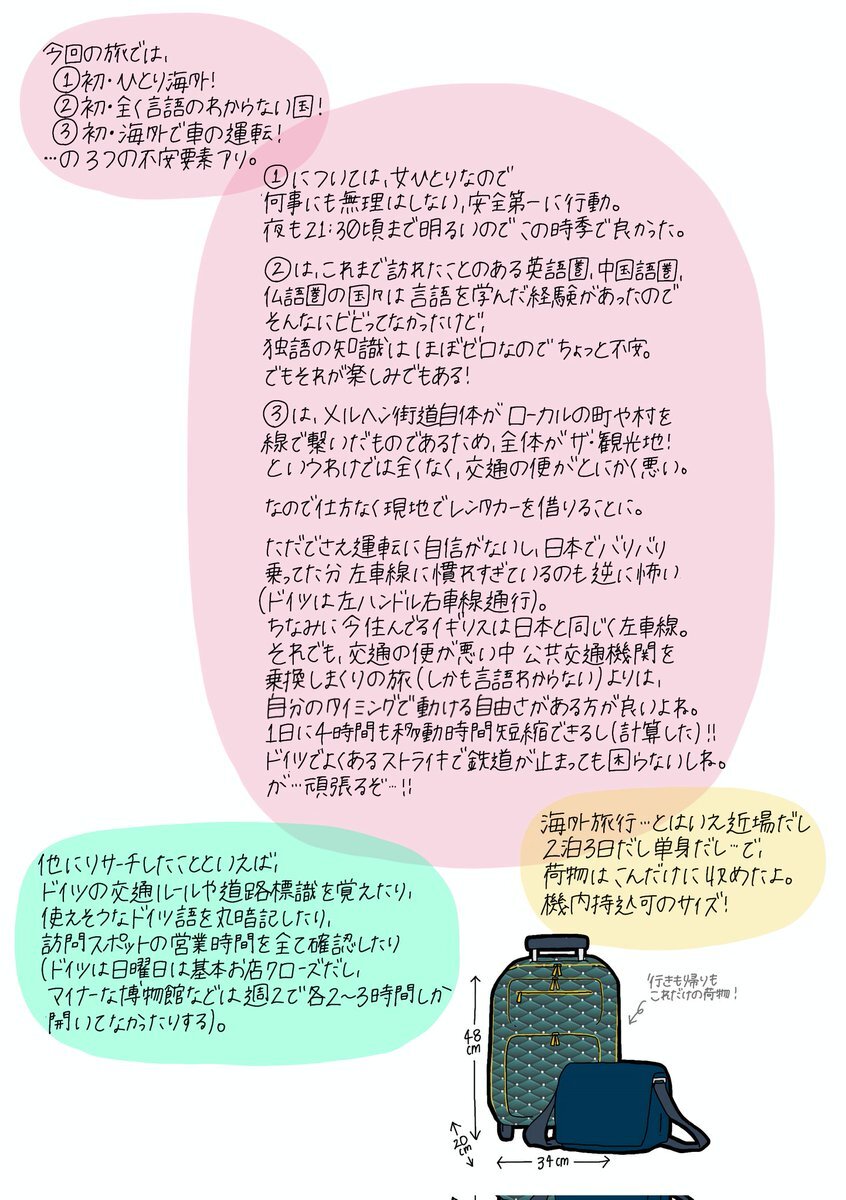 今回の旅では、
①初・ひとり海外!
②初・全く言語のわからない国!
③初・海外で車の運転!
…の3つの不安要素アリ。
①については、女ひとりなので
何事にも無理はしない、安全第一に行動。
夜も21:30頃まで明るいのでこの時季で良かった。
②は、これまで訪れたことのある英語圏、中国語圏、
仏語圏の国々は言語を学んだ経験があったので
そんなにビビってなかったけど、
独語の知識はほぼゼロなのでちょっと不安。
でもそれが楽しみでもある!
③は、メルヘン街道自体がローカルの町や村を
線で繋いだものであるため、全体がザ・観光地!
というわけでは全くなく、交通の便がとにかく悪い。
なので仕方なく現地でレンタカーを借りることに。
ただでさえ運転に自信がないし、日本でバリバリ
乗ってた分左車線に慣れすぎているのも逆に怖い
(ドイツは左ハンドル右車線通行)。
ちなみに今住んでるイギリスは日本と同じく左車線。
それでも、交通の便が悪い中公共交通機関を
乗換しまくりの旅(しかも言語わからない)よりは、
自分のタイミングで動ける自由さがある方が良いよね。
1日に4時間も移動時間短縮できるし(計算した)!!
ドイツでよくあるストライキで鉄道が止まっても困らないしね。
が…頑張るぞ…!!
他にリサーチしたことといえば、
ドイツの交通ルールや道路標識を覚えたり、
使えそうなドイツ語を丸暗記したり、
訪問スポットの営業時間を全て確認したり
(ドイツは日曜日は基本お店クローズだし、
マイナーな博物館などは週2で各2〜3時間しか
開いてなかったりする)。
海外旅行…とはいえ近場だし
2泊3日だし単身だし…で、
荷物はこんだけに収めたよ。
機内持込可のサイズ!
行きも帰りも
これだけの荷物!
48cm
20cm
34cm